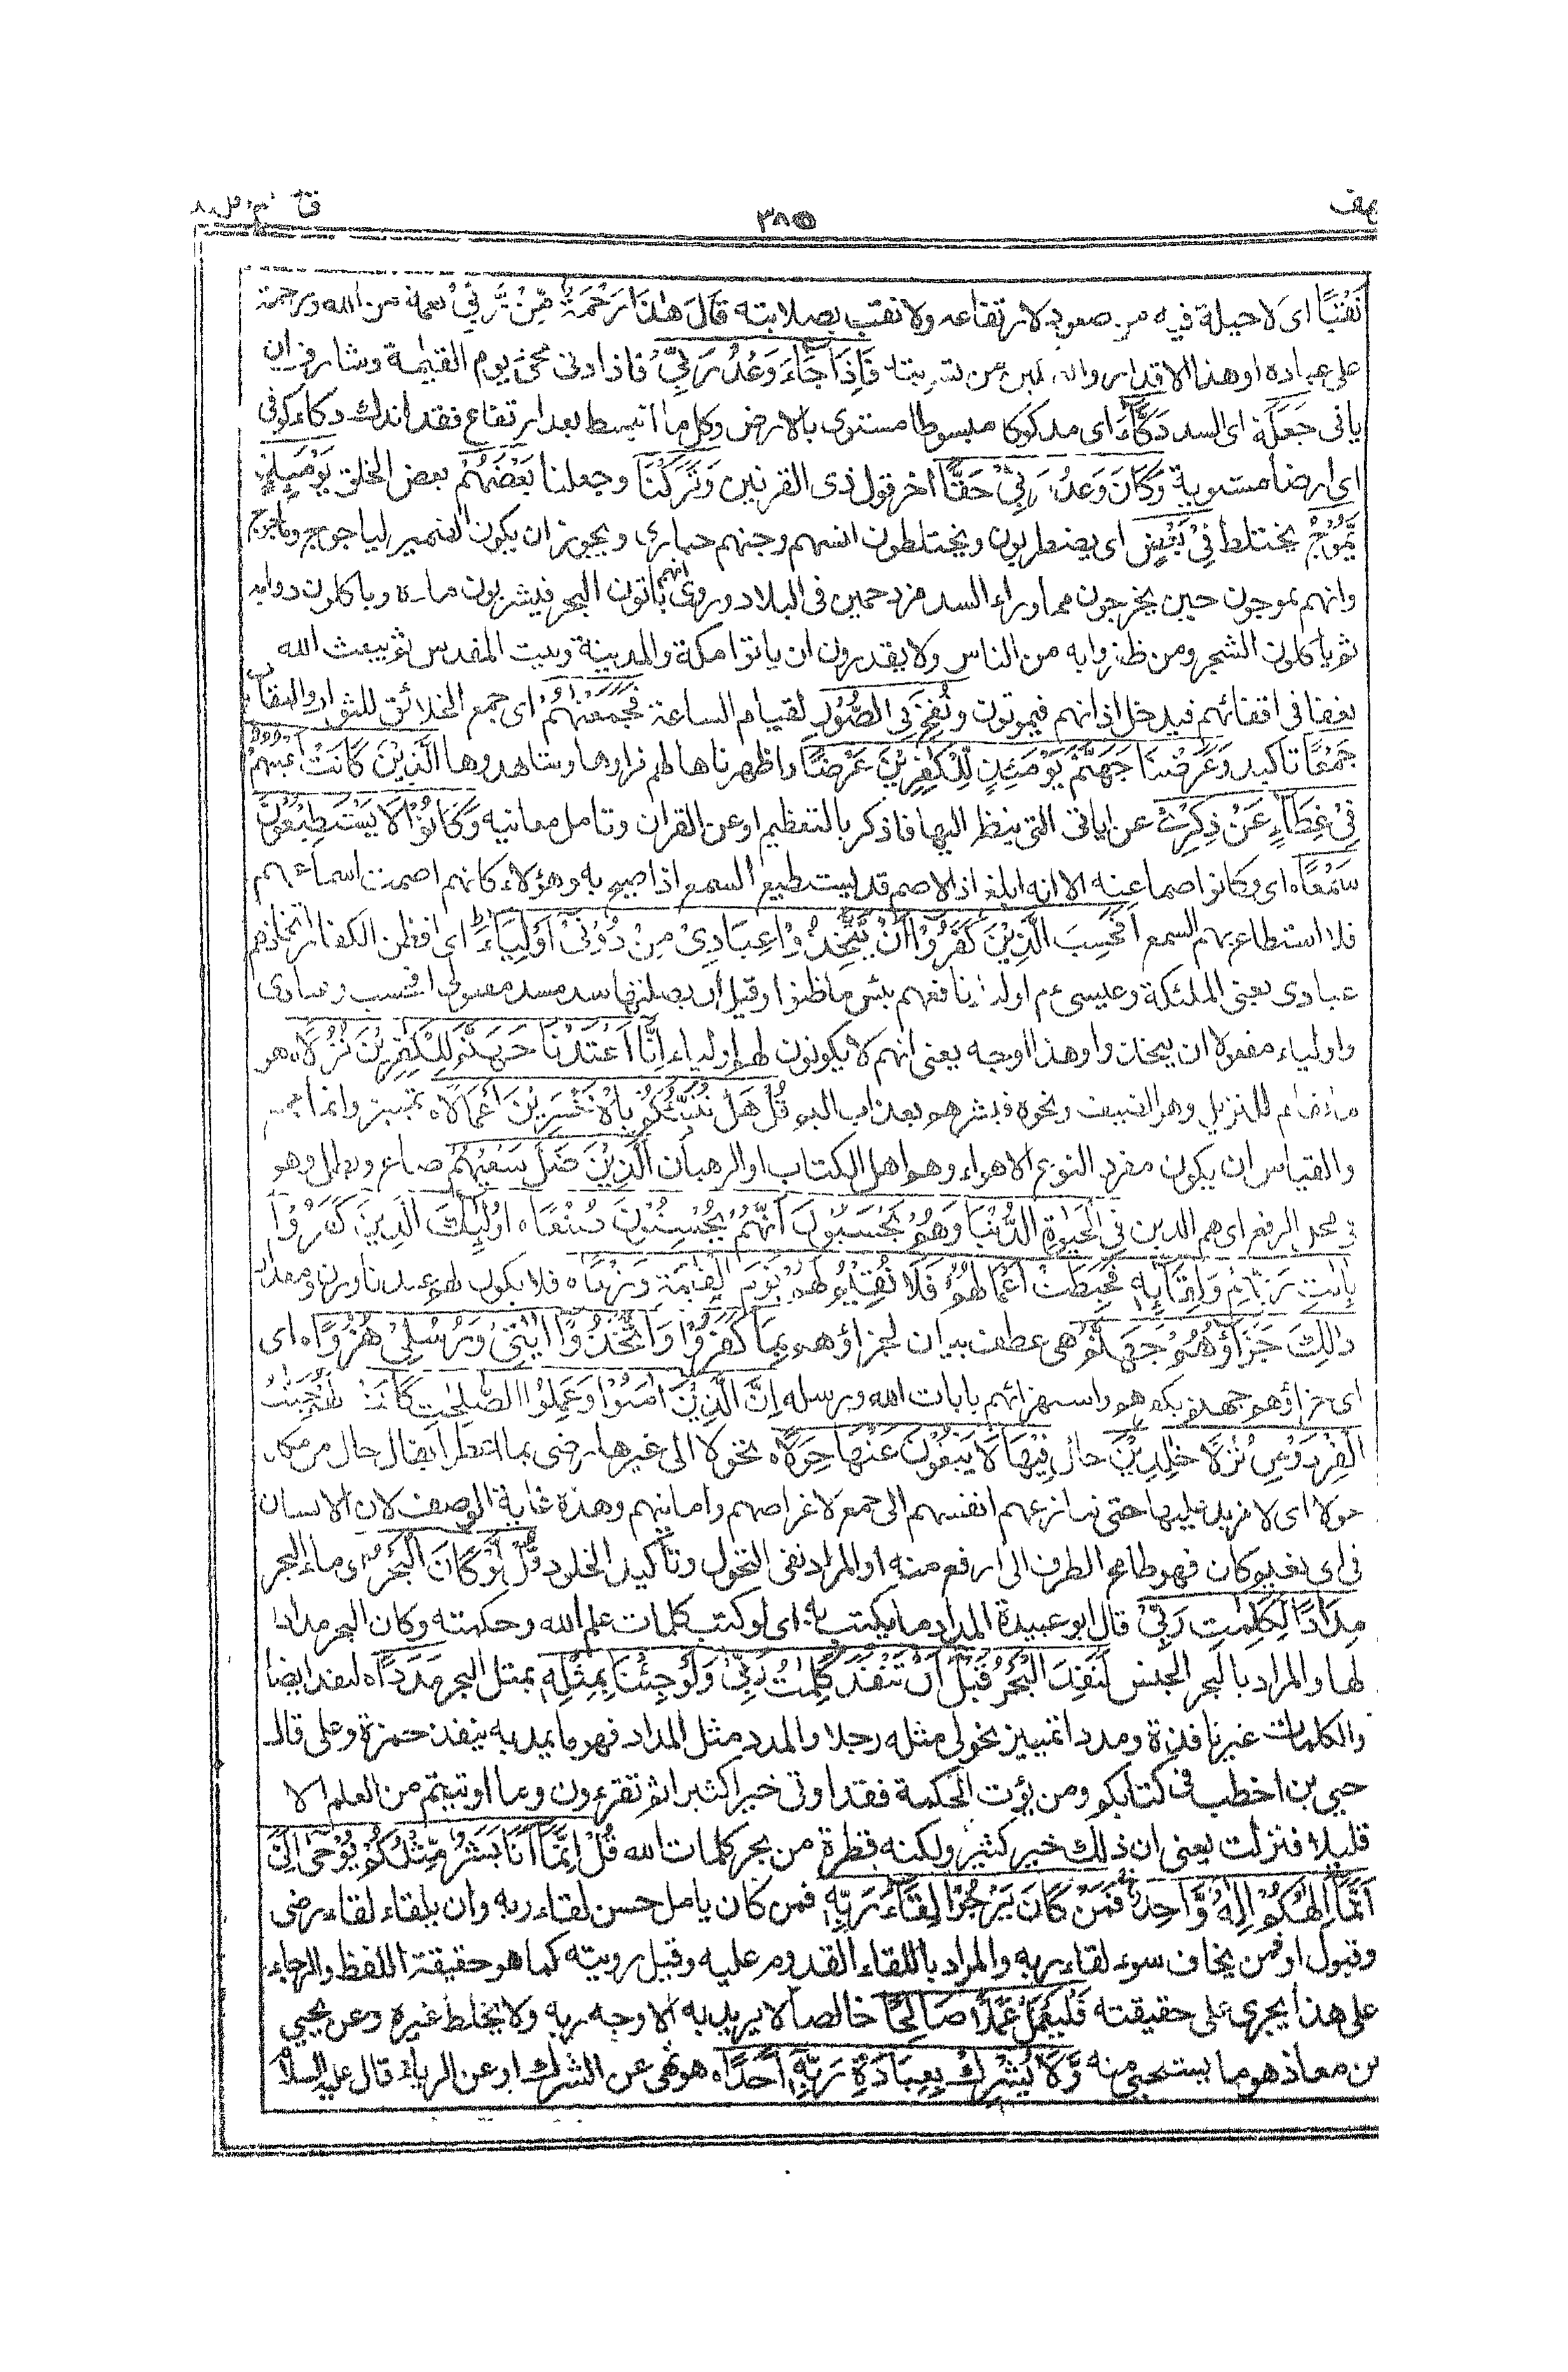 ٣٨٥
نَقْبًا اى لا حيلة فيه من صعود لارتفاعه ولا نقب بصلابته قَالَ هٰذَا رَحْمَةٌ مِّنْ رَّبِّيْ نعمة من الله ورحمة
على عباده او هذا الاقدار والتمكين من تسويته فَاِذَا جَآءَ وَعْدُ رَبِّيْ فاذا دنى مجئ يوم القيٰمة وشارف ان
ياتى جَعَلَهٗ اى السد دَكَّآءَ اى مدكوكا مبسوطا مستوى بالارض وكل ما انبسط بعد ارتفاع فقد اندك دكاء كوفى
اى ارضا مستوية وَكَانَ وَعْدُ رَبِّيْ حَقًّا اخر قول ذى القرنين وَتَرَكْنَا وجعلنا بَعْضَهُمْ بعض الخلق يَوْمَئِذٍ
يَّمُوْجُ يختلط فِيْ بَعْضٍ اى يضطربون ويختلطون انسهم وجنهم حيارى ويجوز ان يكون الضمير لياجوج وماجوج
وانهم يموجون حين يخرجون مما وراء السد مزدحمين فى البلاد وروى انهم ياتون البحر فيشربون ماءه وياكلون دوابه
ثم ياكلون الشجر ومن ظفروا به من الناس ولا يقدرون ان ياتوا مكة والمدينة وبيت المقدس ثم يبعث الله
نغفا فى اقفائهم فيدخل اذانهم فيموتون وَنُفِخَ فِي الصُّوْرِ لقيام الساعة فَجَمَعْنٰهُمْ اى جمع الخلائق للثواب والعقاب
جَمْعًا تاكيد وَعَرَضْنَا جَهَنَّمَ يَوْمَئِذٍ لِّلْكٰفِرِيْنَ عَرْضًا واظهرناها لهم فراوها وشاهدوها الَّذِيْنَ كَانَتْ اَعْيُنُهُمْ
فِيْ غِطَآءٍ عَنْ ذِكْرِيْ عن اياتى التى ينظر اليها فاذكر بالتعظيم او عن القران وتامل معانيه وَكَانُوْا لَا يَسْتَطِيْعُوْنَ
سَمْعًا اى وكانوا صما عنه الا انه ابلغ اذ الاصم قد يستطيع السمع اذا صيح به وهؤلاء كانهم اصمت اسماعهم
فلا استطاعة بهم السمع اَفَحَسِبَ الَّذِيْنَ كَفَرُوْا اَنْ يَّتَّخِذُوْا عِبَادِيْ مِنْ دُوْنِيْ اَوْلِيَآءَ اى افظن الكفار اتخاذهم
عبادى يعنى الملئكة وعيسى ءم اولياء نافعهم بئس ما ظنوا وقيل ان بصلتها سد مسد مفعولى افحسب وعبادى
واولياء مفعولا ان يتخذوا وهذا اوجه يعنى انهم لا يكونون لهم اولياء اِنَّآ اَعْتَدْنَا جَهَنَّمَ لِلْكٰفِرِيْنَ نُزُلًا هو
ما يقام للنزيل وهو الضيف ونحوه فبشرهم بعذاب اليم قُلْ هَلْ نُنَبِّئُكُمْ بِالْاَخْسَرِيْنَ اَعْمَالًا تمييز وانما جمع
والقياس ان يكون مفردا لتنوع الاهواء وهم اهل الكتاب او الرهبان اَلَّذِيْنَ ضَلَّ سَعْيُهُمْ ضاع وبطل وهو
فى محل الرفع اى هم الذين فِي الْحَيٰوةِ الدُّنْيَا وَهُمْ يَحْسَبُوْنَ اَنَّهُمْ يُحْسِنُوْنَ صُنْعًا اُولٰٓئِكَ الَّذِيْنَ كَفَرُوْا
بِاٰيٰتِ رَبِّهِمْ وَلِقَآئِهٖ فَحَبِطَتْ اَعْمَالُهُمْ فَلَا نُقِيْمُ لَهُمْ يَوْمَ الْقِيٰمَةِ وَزْنًا فلا يكون لهم عندنا وزن ومقدار
ذٰلِكَ جَزَآؤُهُمْ جَهَنَّمُ هى عطف بيان لجزاؤهم بِمَا كَفَرُوْا وَاتَّخَذُوْٓا اٰيٰتِيْ وَرُسُلِيْ هُزُوًا اى
اى جزاؤهم جهنم بكفرهم واستهزائهم بايات الله ورسله اِنَّ الَّذِيْنَ اٰمَنُوْا وَعَمِلُوا الصّٰلِحٰتِ كَانَتْ لَهُمْ جَنّٰتُ
الْفِرْدَوْسِ نُزُلًا خٰلِدِيْنَ حال فِيْهَا لَا يَبْغُوْنَ عَنْهَا حِوَلًا تحولا الى غيرها رضى بما اعطوا يقال حال من مكانه
حولا اى لا مزيد عليها حتى تنازعهم انفسهم الى جمع لاغراضهم وامانيهم وهذه غاية الوصف لان الانسان
فى اى نعيم كان فهو طامح الطرف الى ارفع منه او المراد نفى التحول وتأكيد الخلود قُلْ لَّوْ كَانَ الْبَحْرُ اى ماء البحر
مِدَادًا لِّكَلِمٰتِ رَبِّيْ قال ابو عبيدة المداد ما يكتب به اى لو كتب كلمات علم الله وحكمته وكان البحر مدادا
لها والمراد بالبحر الجنس لَنَفِدَ الْبَحْرُ قَبْلَ اَنْ تَنْفَدَ كَلِمٰتُ رَبِّيْ وَلَوْ جِئْنَا بِمِثْلِهٖ بمثل البحر مَدَدًا لنفد ايضا
والكلمات غير نافدة ومددا تمييز نحو لى مثله رجلا والمدد مثل المداد فهو ما يمد به ينفد حمزة وعلى قال
حيى بن اخطب فى كتابكم ومن يؤت الحكمة فقد اوتى خيرا كثيرا ثم تقرءون وما اوتيتم من العلم الا
قليلا فنزلت يعنى ان ذلك خير كثير ولكنه قطرة من بحر كلمات الله قُلْ اِنَّمَآ اَنَا بَشَرٌ مِّثْلُكُمْ يُوْحٰٓى اِلَيَّ
اَنَّمَآ اِلٰهُكُمْ اِلٰهٌ وَّاحِدٌ فَمَنْ كَانَ يَرْجُوْا لِقَآءَ رَبِّهٖ فمن كان يامل حسن لقاء ربه وان يلقاه لقاء رضى
وقبول او فمن يخاف سوء لقاء ربه والمراد باللقاء القدوم عليه وقيل رويته كما هو حقيقة اللفظ والرجاء
على هذا يجرى على حقيقته فَلْيَعْمَلْ عَمَلًا صَالِحًا خالصا لا يريد به الا وجه ربه ولا يخلط غيره وعن يحيي
بن معاذ هو ما يستحيى منه وَّلَا يُشْرِكْ بِعِبَادَةِ رَبِّهٖٓ اَحَدًا هو نهى عن الشرك او عن الرياء قال عليه السلام